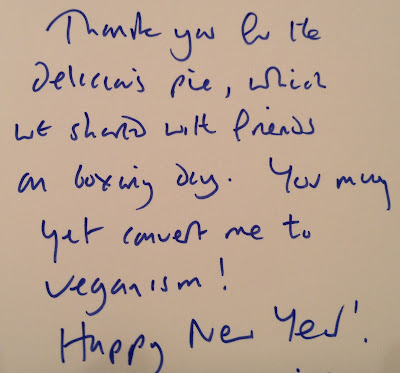 Thank you for the
delicious pie, which
we shared with friends
on boxing day. You may
yet convert me to
veganism!
Happy New Year!